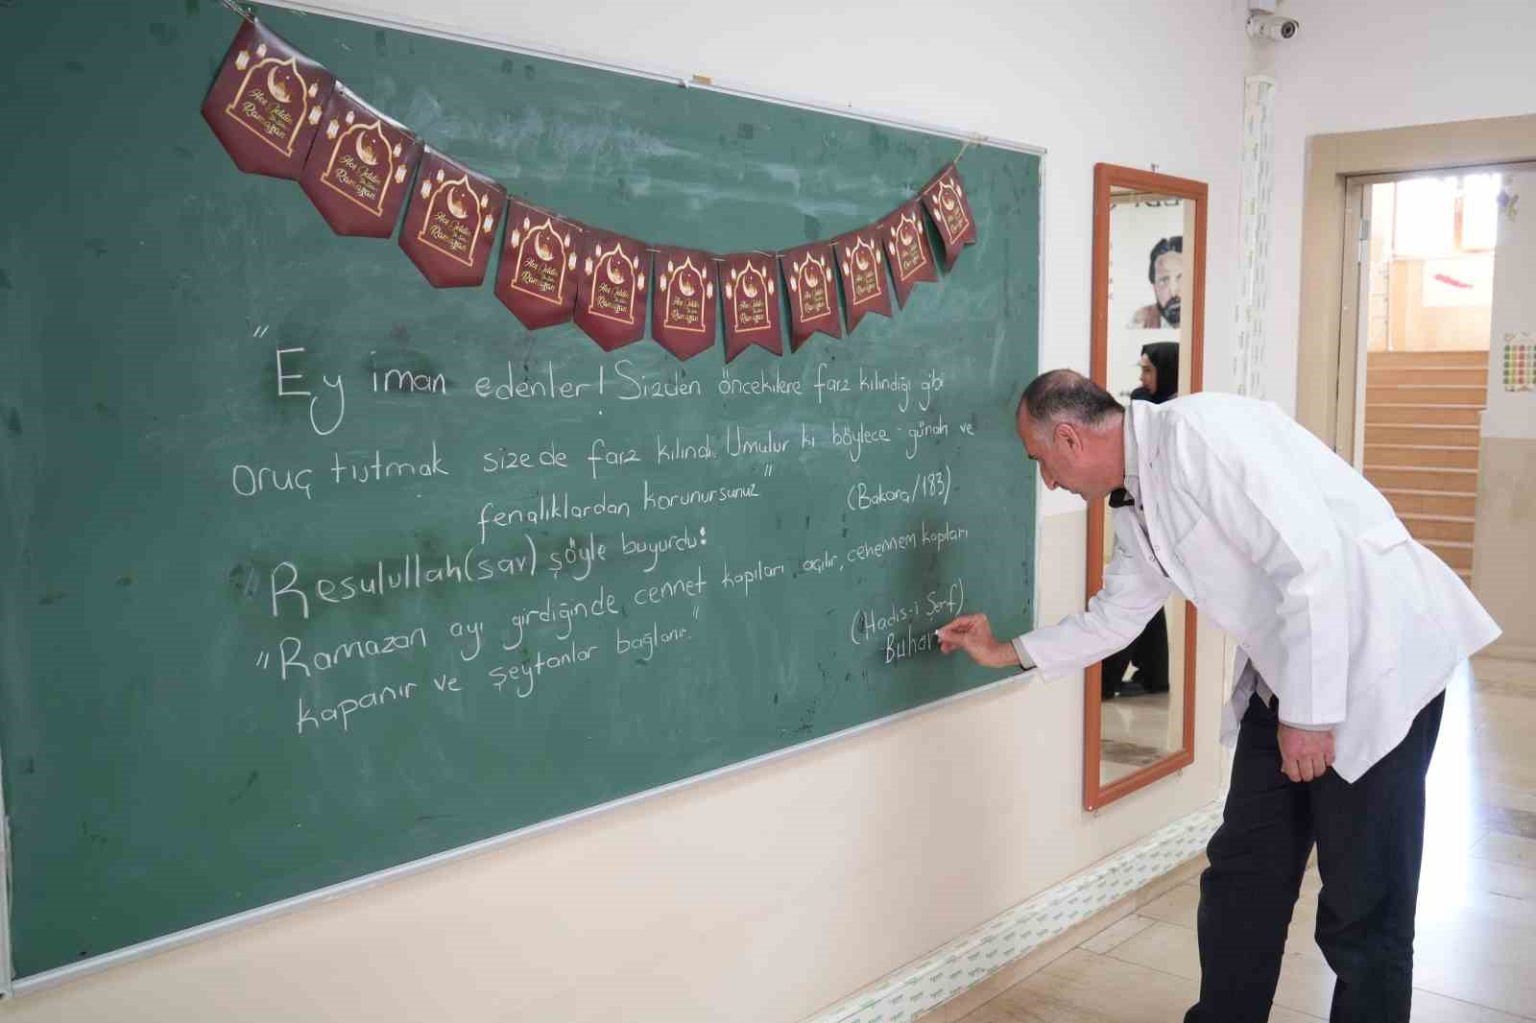 Hoş Geldin
Ya Şehr-i
Ramazan
"Ey iman edenler! Sizden öncekilere farz kılındığı gibi
oruç tutmak size de farz kılındı. Umulur ki böylece günah ve
fenalıklardan korunursunuz" (Bakara/183)
Resulullah(sav) şöyle buyurdu:
"Ramazan ayı girdiğinde cennet kapıları açılır, cehennem kapıları
kapanır ve şeytanlar bağlanır." (Hadis-i Şerif)
Buhari